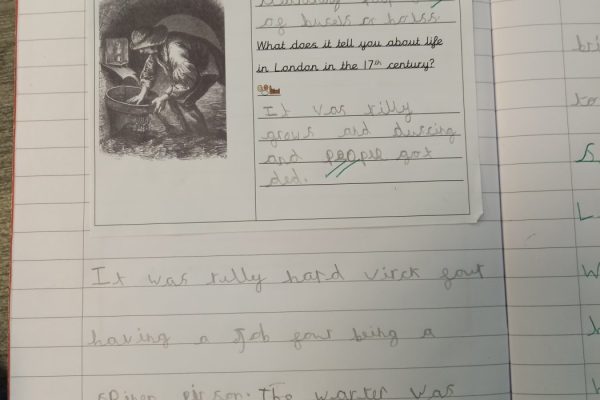 of bucels or holss
What does it tell you about life
in London in the 17th century?
It was rilly
grows and duscing
and people got
ded.
It was rully hard virck four
having a Job four being a
person. The warter was
bri
to
S
L
W